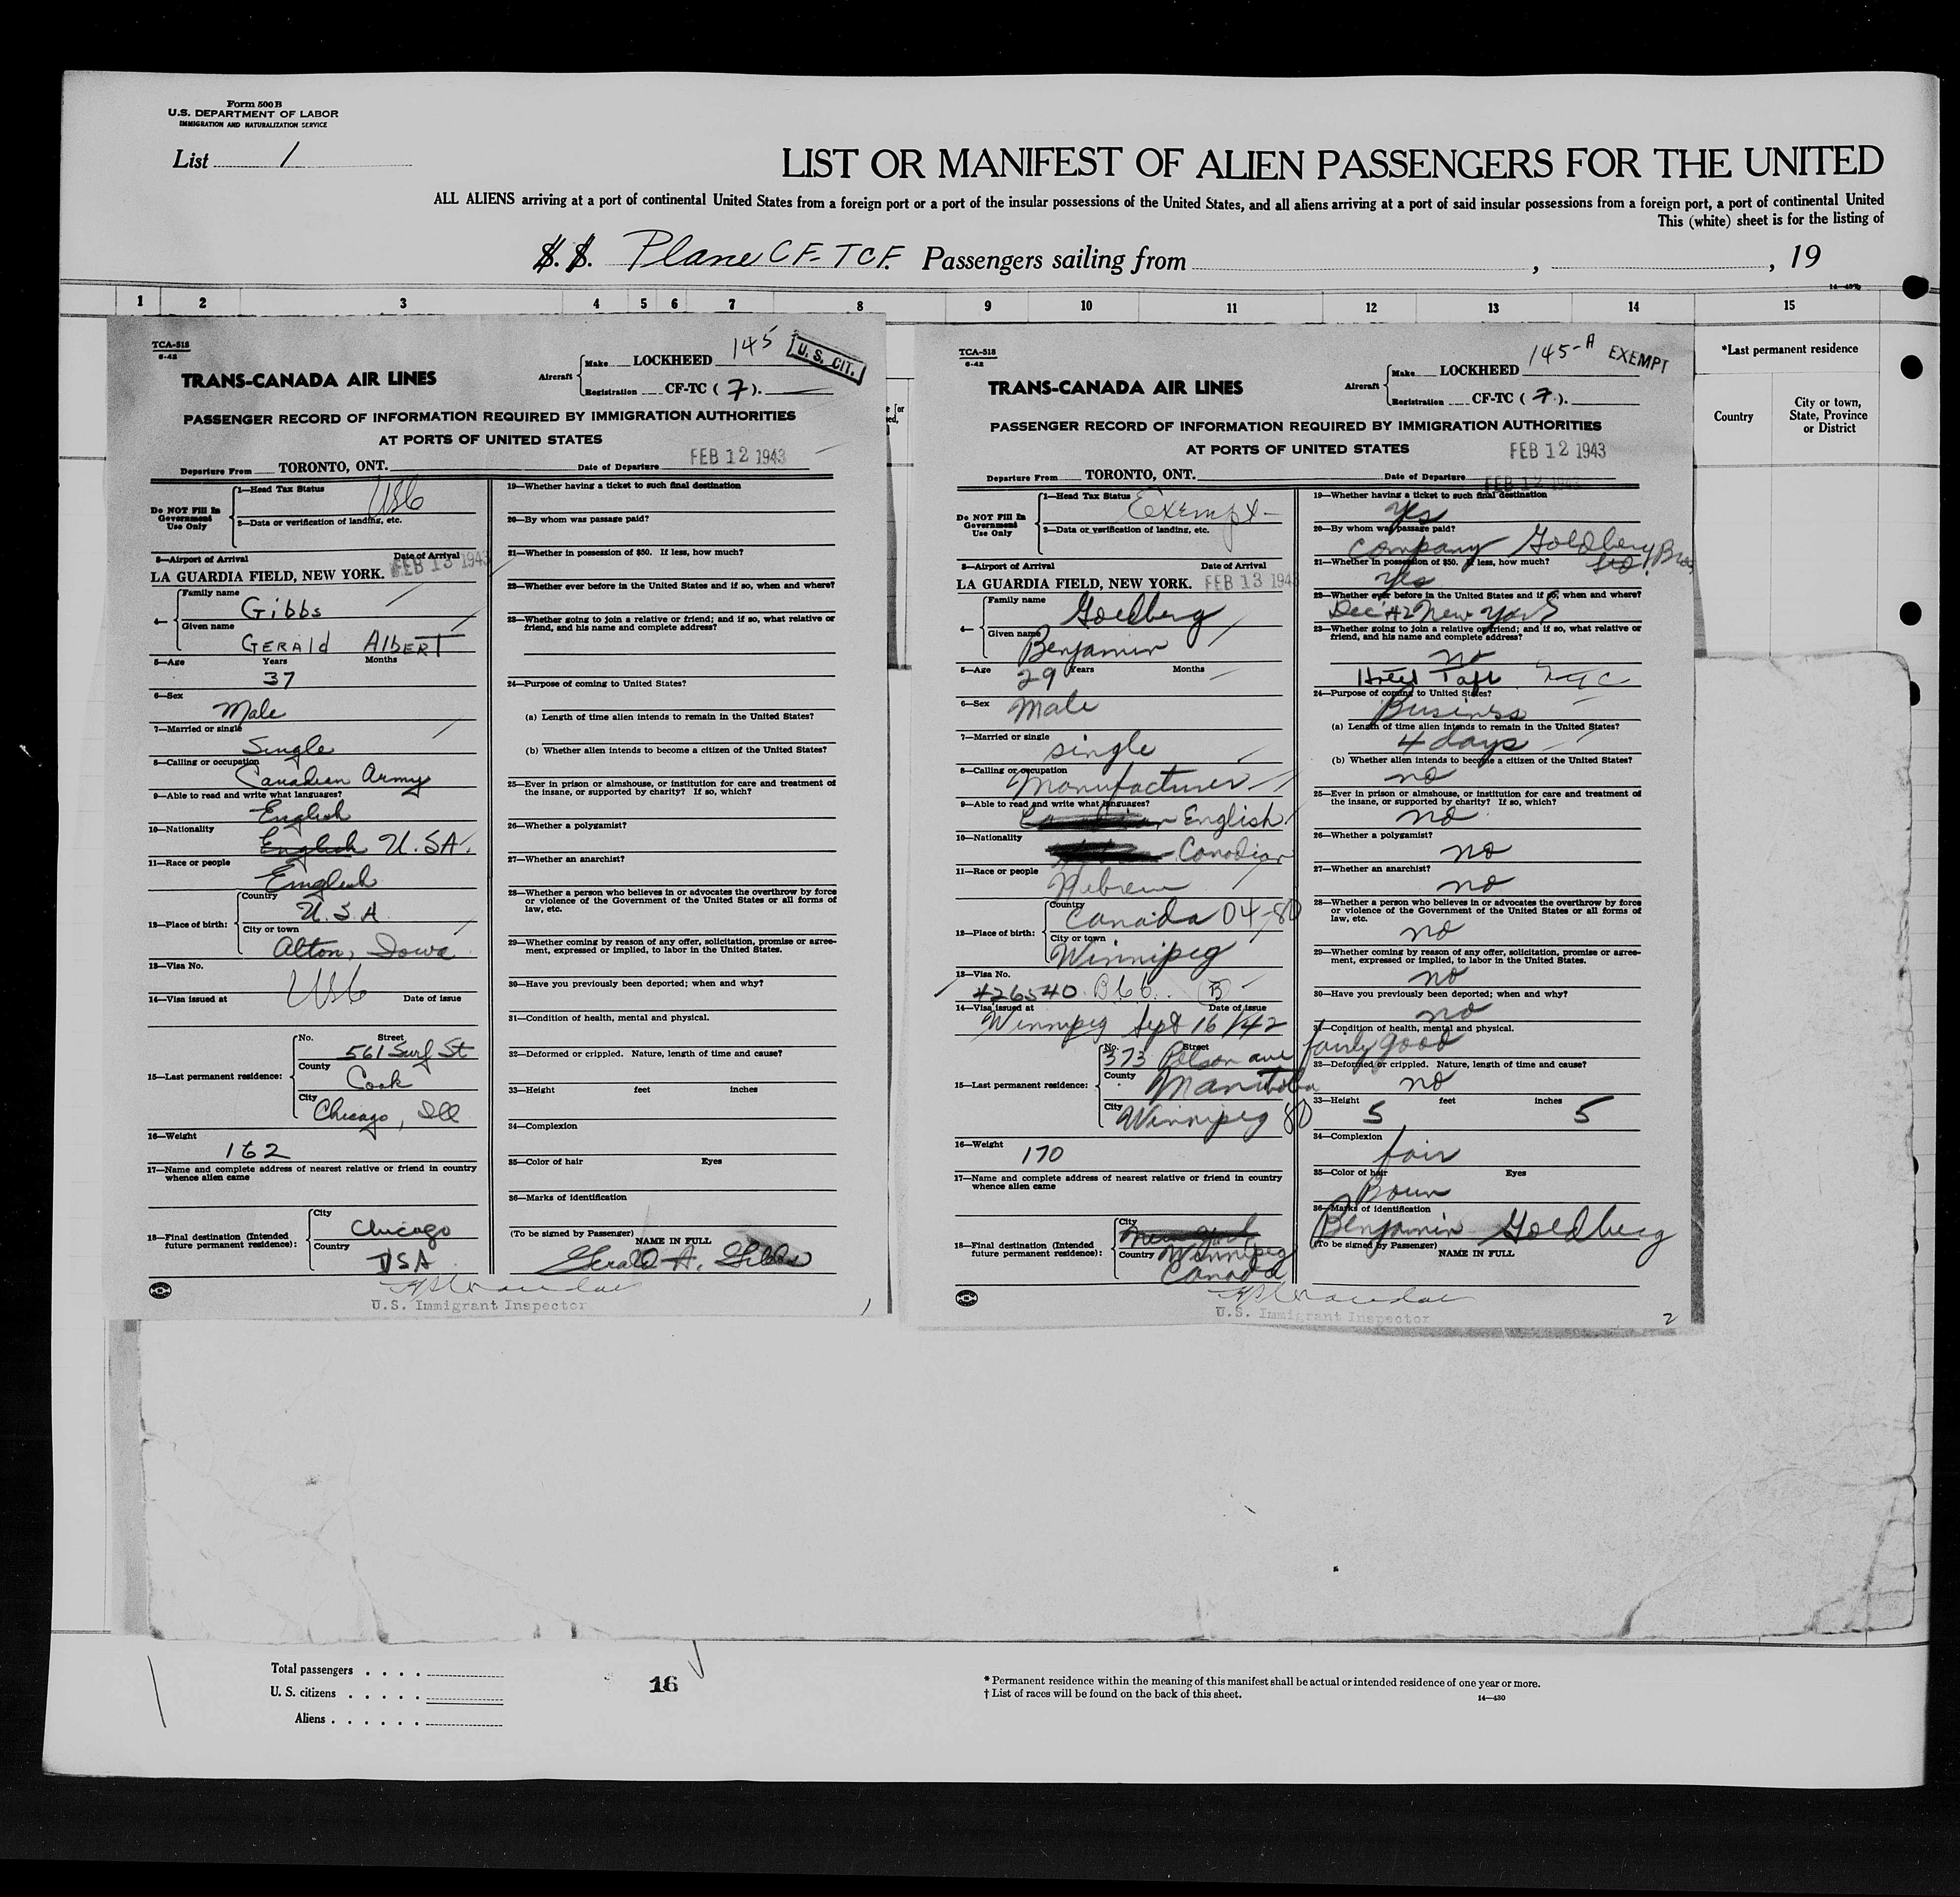 Form 500 B
U.S. DEPARTMENT OF LABOR
IMMIGRATION AND NATURALIZATION SERVICE
List 1
LIST OR MANIFEST OF ALIEN PASSENGERS FOR THE UNITED
ALL ALIENS arriving at a port of continental United States from a foreign port or a port of the insular possessions of the United States, and all aliens arriving at a port of said insular possessions from a foreign port, a port of continental United
This (white) sheet is for the listing of
S. S. Plane CF-TCF. Passengers sailing from , , 19
1 2 3 4 5 6 7 8 9 10 11 12 13 14 15
*Last permanent residence
Country
City or town, State, Province or District
TCA-518
6-42
145
U. S. CIT.
TRANS-CANADA AIR LINES
Aircraft
Make LOCKHEED
Registration CF-TC ( 7 ).
PASSENGER RECORD OF INFORMATION REQUIRED BY IMMIGRATION AUTHORITIES
AT PORTS OF UNITED STATES
Departure From TORONTO, ONT. Date of Departure FEB 12 1943
Do NOT Fill In Government Use Only
1—Head Tax Status USC
2—Data or verification of landing, etc.
3—Airport of Arrival Date of Arrival
LA GUARDIA FIELD, NEW YORK. FEB 13 1943
4—
Family name
Gibbs
Given name
GERALD ALBERT
5—Age Years Months
37
6—Sex
Male
7—Married or single
Single
8—Calling or occupation
Canadian Army
9—Able to read and write what languages?
English
10—Nationality
English U.S.A.
11—Race or people
English
12—Place of birth:
Country
U.S.A
City or town
Alton, Iowa
13—Visa No.
USC
14—Visa issued at Date of issue
15—Last permanent residence:
No. Street
561 Surf St
County
Cook
City
Chicago, Ill
16—Weight
162
17—Name and complete address of nearest relative or friend in country whence alien came
18—Final destination (Intended future permanent residence):
City
Chicago
Country
USA
19—Whether having a ticket to such final destination
20—By whom was passage paid?
21—Whether in possession of $50. If less, how much?
22—Whether ever before in the United States and if so, when and where?
23—Whether going to join a relative or friend; and if so, what relative or friend, and his name and complete address?
24—Purpose of coming to United States?
(a) Length of time alien intends to remain in the United States?
(b) Whether alien intends to become a citizen of the United States?
25—Ever in prison or almshouse, or institution for care and treatment of the insane, or supported by charity? If so, which?
26—Whether a polygamist?
27—Whether an anarchist?
28—Whether a person who believes in or advocates the overthrow by force or violence of the Government of the United States or all forms of law, etc.
29—Whether coming by reason of any offer, solicitation, promise or agreement, expressed or implied, to labor in the United States.
30—Have you previously been deported; when and why?
31—Condition of health, mental and physical.
32—Deformed or crippled. Nature, length of time and cause?
33—Height feet inches
34—Complexion
35—Color of hair Eyes
36—Marks of identification
(To be signed by Passenger)
NAME IN FULL
Gerald A. Gibbs
U.S. Immigrant Inspector
1
TCA-518
6-42
145-A
EXEMPT
TRANS-CANADA AIR LINES
Aircraft
Make LOCKHEED
Registration CF-TC ( 7 ).
PASSENGER RECORD OF INFORMATION REQUIRED BY IMMIGRATION AUTHORITIES
AT PORTS OF UNITED STATES
FEB 12 1943
Departure From TORONTO, ONT. Date of Departure FEB 12 1943
Do NOT Fill In Government Use Only
1—Head Tax Status Exempt
2—Data or verification of landing, etc.
3—Airport of Arrival Date of Arrival
LA GUARDIA FIELD, NEW YORK. FEB 13 1943
4—
Family name
Goldberg
Given name
Benjamin
5—Age Years Months
29
6—Sex
Male
7—Married or single
single
8—Calling or occupation
Manufacturer
9—Able to read and write what languages?
English
10—Nationality
Canadian
11—Race or people
Hebrew
12—Place of birth:
Country
Canada 04-80
City or town
Winnipeg
13—Visa No.
426540 B66. B
14—Visa issued at Date of issue
Winnipeg Sept 16/42
15—Last permanent residence:
No. Street
373 Polson ave
County
Manitoba
City
Winnipeg 80
16—Weight
170
17—Name and complete address of nearest relative or friend in country whence alien came
18—Final destination (Intended future permanent residence):
City
New York
Country Winnipeg
Canada
19—Whether having a ticket to such final destination
Yes
20—By whom was passage paid?
Company Goldberg Bros
21—Whether in possession of $50. If less, how much?
Yes
22—Whether ever before in the United States and if so, when and where?
Dec 42 New York
23—Whether going to join a relative or friend; and if so, what relative or friend, and his name and complete address?
no
Hotel Taft NYC
24—Purpose of coming to United States?
Business
(a) Length of time alien intends to remain in the United States?
4 days
(b) Whether alien intends to become a citizen of the United States?
no
25—Ever in prison or almshouse, or institution for care and treatment of the insane, or supported by charity? If so, which?
no
26—Whether a polygamist?
no
27—Whether an anarchist?
no
28—Whether a person who believes in or advocates the overthrow by force or violence of the Government of the United States or all forms of law, etc.
no
29—Whether coming by reason of any offer, solicitation, promise or agreement, expressed or implied, to labor in the United States.
no
30—Have you previously been deported; when and why?
no
31—Condition of health, mental and physical.
fairly good
32—Deformed or crippled. Nature, length of time and cause?
no
33—Height feet inches
5 5
34—Complexion
fair
35—Color of hair Eyes
Boun
36—Marks of identification
Benjamin Goldberg
(To be signed by Passenger)
NAME IN FULL
U.S. Immigrant Inspector
2
Total passengers . . . .
U. S. citizens . . . . .
Aliens . . . . . .
16
* Permanent residence within the meaning of this manifest shall be actual or intended residence of one year or more.
† List of races will be found on the back of this sheet.
14—430